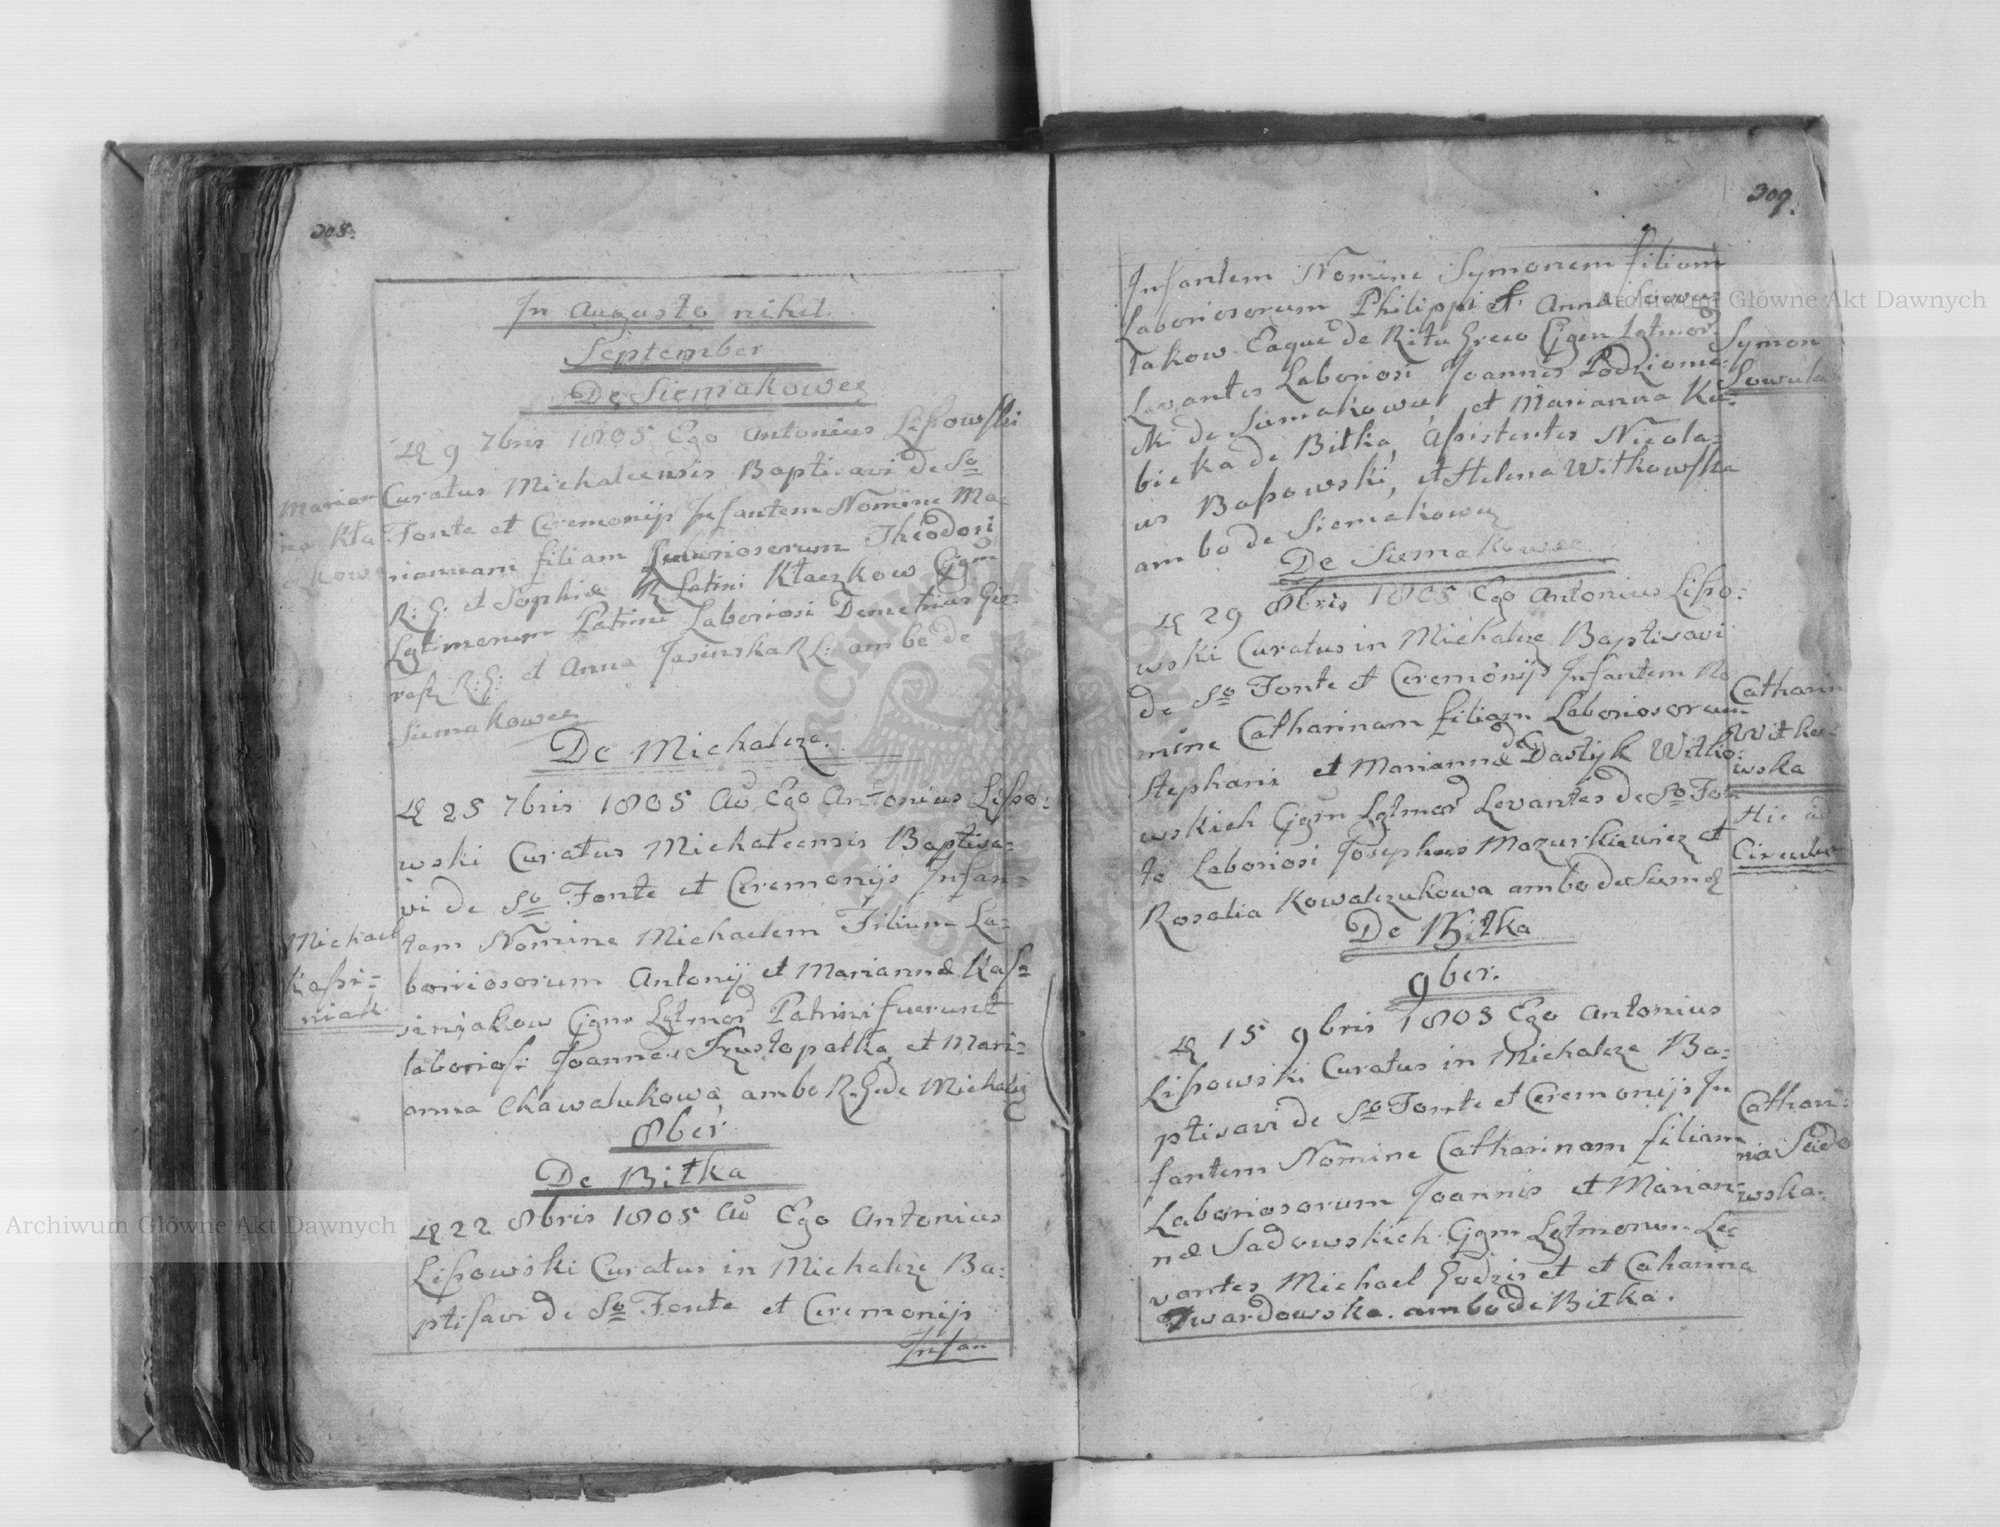 308.
In Augusto nihil.
September
De Siemakowce
Die 9 7bris 1805 Ego Antonius Lissowski
Curatus Michalcensis Baptisavi de So
Fonte et Ceremonijs Infantem Nomine Ma=
riannam filiam Laboriosorum Theodori
R: G: et Sophiæ R Latini Kłaczkow Cjgm
Lgtimorum Patrini Laboriosi Demetrius
R: G: et Anna Jasinska R L: ambo de
Siemakowce
Marian
na Kła
De Michalcze.
25 7bris 1805 Ao Ego Antonius Lisso=
wski Curatus Michalcensis Baptisa=
vi de So Fonte et Ceremonijs Infan=
tem Nomine Michaelem Filium La=
boriosorum Antonij et Mariannæ Kas=
siniakow Cjgm Lgtmor Patrini fuerunt
laborios: Joannes Trustopalka et Mari=
anna Chawalukowa ambo R. G. de Michalcz
Michael
Kassi=
niak
8ber
De Bitka
22 8bris 1805 Ao Ego Antonius
Lissowski Curatus in Michalcze Ba=
ptisavi de So Fonte et Ceremonijs
Infan
309.
Infantem Nomine Symonem filiam
Laboriosorum Philippi et Anna Sowu
lakow Eaque de Ritu Greco Cjgm Lgtmor
Levantes Laboriosi Joannes Podziome=
ki de Siemakowce, et Marianna Ku=
bicka de Bitka, Assistentes Nicola=
us Bassowski, et Helena Witkowska
ambo de Siemakowce
Symon
Sowula
De Siemakowce
29 8bris 1805 Ego Antonius Lisso=
wski Curatus in Michalcze Baptisavi
de So Fonte et Ceremonijs Infantem No
mine Catharinam filiam Laboriosorum
Stephani et Mariannæ de Dastyk Witko=
wskich Cjgm Lgtmor Levantes de So Fon
te Laboriosi Josephus Mazurkiewicz et
Rosalia Kowalczukowa ambo de Siemak
Catharin
Witko=
wska
Hic ad
Circulum
De Bitka
9ber.
15 9bris 1805 Ego Antonius
Lissowski Curatus in Michalcze Ba=
ptisavi de So Fonte et Ceremonijs In
fantem Nomine Catharinam filiam
Laboriosorum Joannis et Marian=
næ Sadowskich Cjgm Lgtmorum Le=
vantes Michael Godzis et et Caharina
Twardowska. ambo de Bitka.
Cathari=
na Sado
wska.
Archiwum Główne Akt Dawnych
Archiwum Główne Akt Dawnych